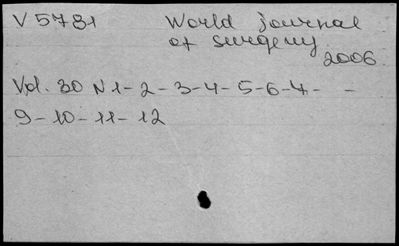 V 5781 World journal
of surgery
2006
Vol. 30 N 1 - 2 - 3 - 4 - 5 - 6 - 4 - -
9 - 10 - 11 - 12